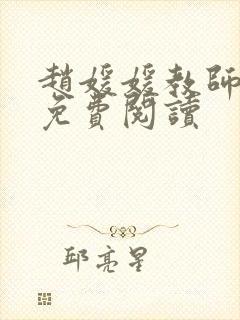 趙媛媛教師
免費閱讀
邱亮星